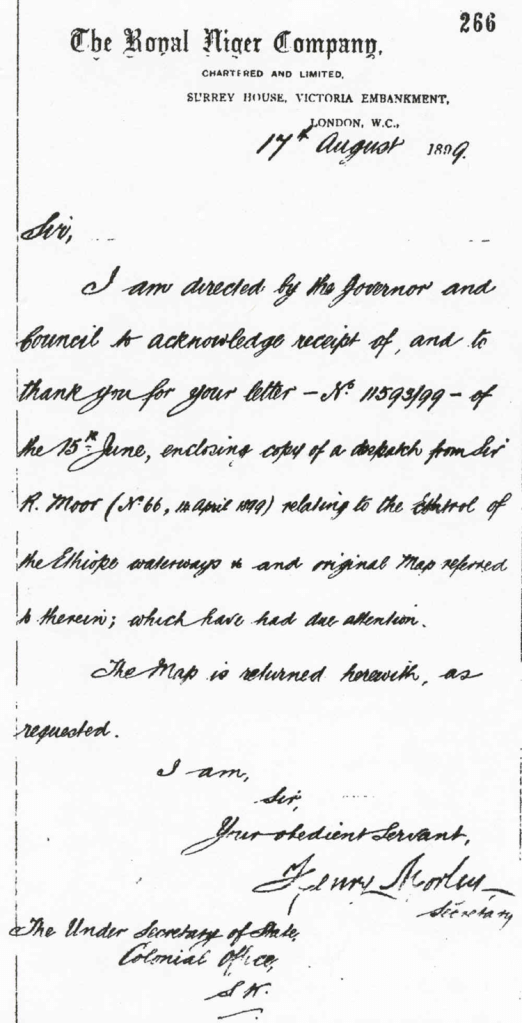 266
The Royal Niger Company,
CHARTERED AND LIMITED,
SURREY HOUSE, VICTORIA EMBANKMENT,
LONDON, W.C.,
17th August 1899.
Sir,
I am directed by the Governor and
Council to acknowledge receipt of, and to
thank you for your letter – No. 11593/99 – of
the 15th June, enclosing copy of a despatch from Sir
R. Moor (No. 66, 14 April 1899) relating to the Control of
the Ethiope waterways and original Map referred
to therein; which have had due attention.
The Map is returned herewith, as
requested.
I am,
Sir,
Your obedient Servant,
Henry Morley
Secretary
The Under Secretary of State,
Colonial Office,
S.W.